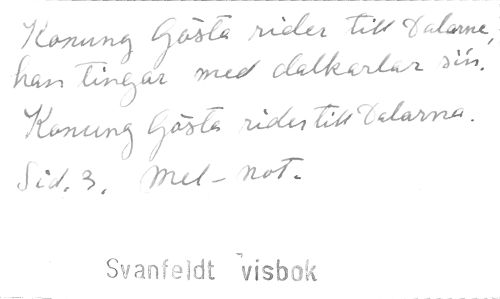 Konung Gösta rider till Dalarne,
han tingar med dalkarlar sin.
Konung Gösta rider till Dalarna.
Sid. 3. Mel-not.
Svanfeldt visbok